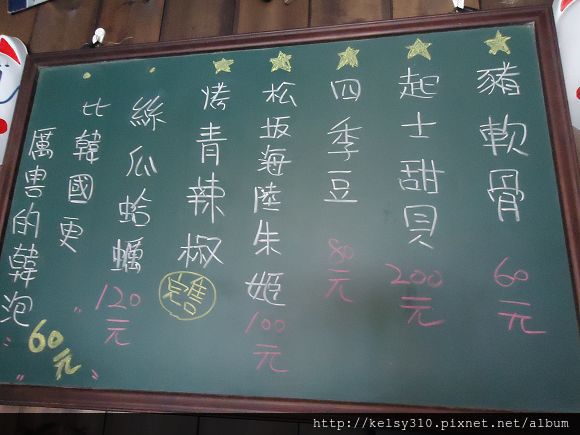 豬軟骨 60元
起士甜貝 200元
四季豆 80元
松坂海陸朱姬 100元
烤青辣椒 完售
絲瓜蛤蠣 120元
比韓國更
厲害的韓泡 60元
http://kelsy310.pixnet.net/album